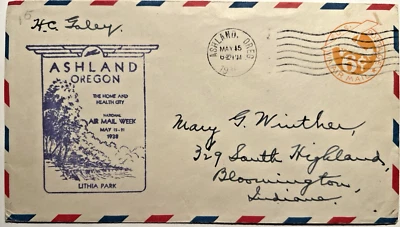 H.C. Galey
ASHLAND
OREGON
THE HOME AND
HEALTH CITY
NATIONAL
AIR MAIL WEEK
MAY 15-21
1938
LITHIA PARK
ASHLAND, OREG.
MAY 15
6
AIR MAIL
Mary G. Winther,
329 South Highland,
Bloomington,
Indiana.